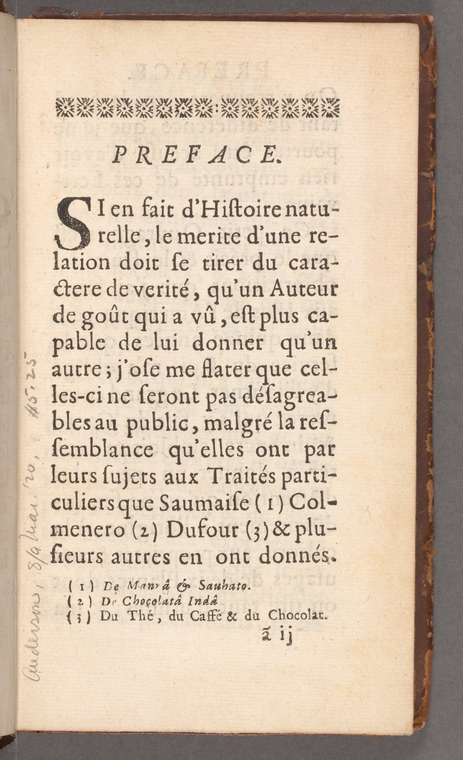 PREFACE.
SI en fait d'Hiſtoire natu-
relle, le merite d'une re-
lation doit ſe tirer du cara-
ctere de verité, qu'un Auteur
de goût qui a vû, eſt plus ca-
pable de lui donner qu'un
autre; j'oſe me flater que cel-
les-ci ne ſeront pas déſagrea-
bles au public, malgré la reſ-
ſemblance qu'elles ont par
leurs ſujets aux Traités parti-
culiers que Saumaiſe (1) Col-
menero (2) Dufour (3) & plu-
ſieurs autres en ont donnés.
(1) De Manna & Sauhato.
(2) De Choçolatâ Indâ
(3) Du Thé, du Caffé & du Chocolat.
ã ij
Anderson, 8/9 Mar. '20, 45.25